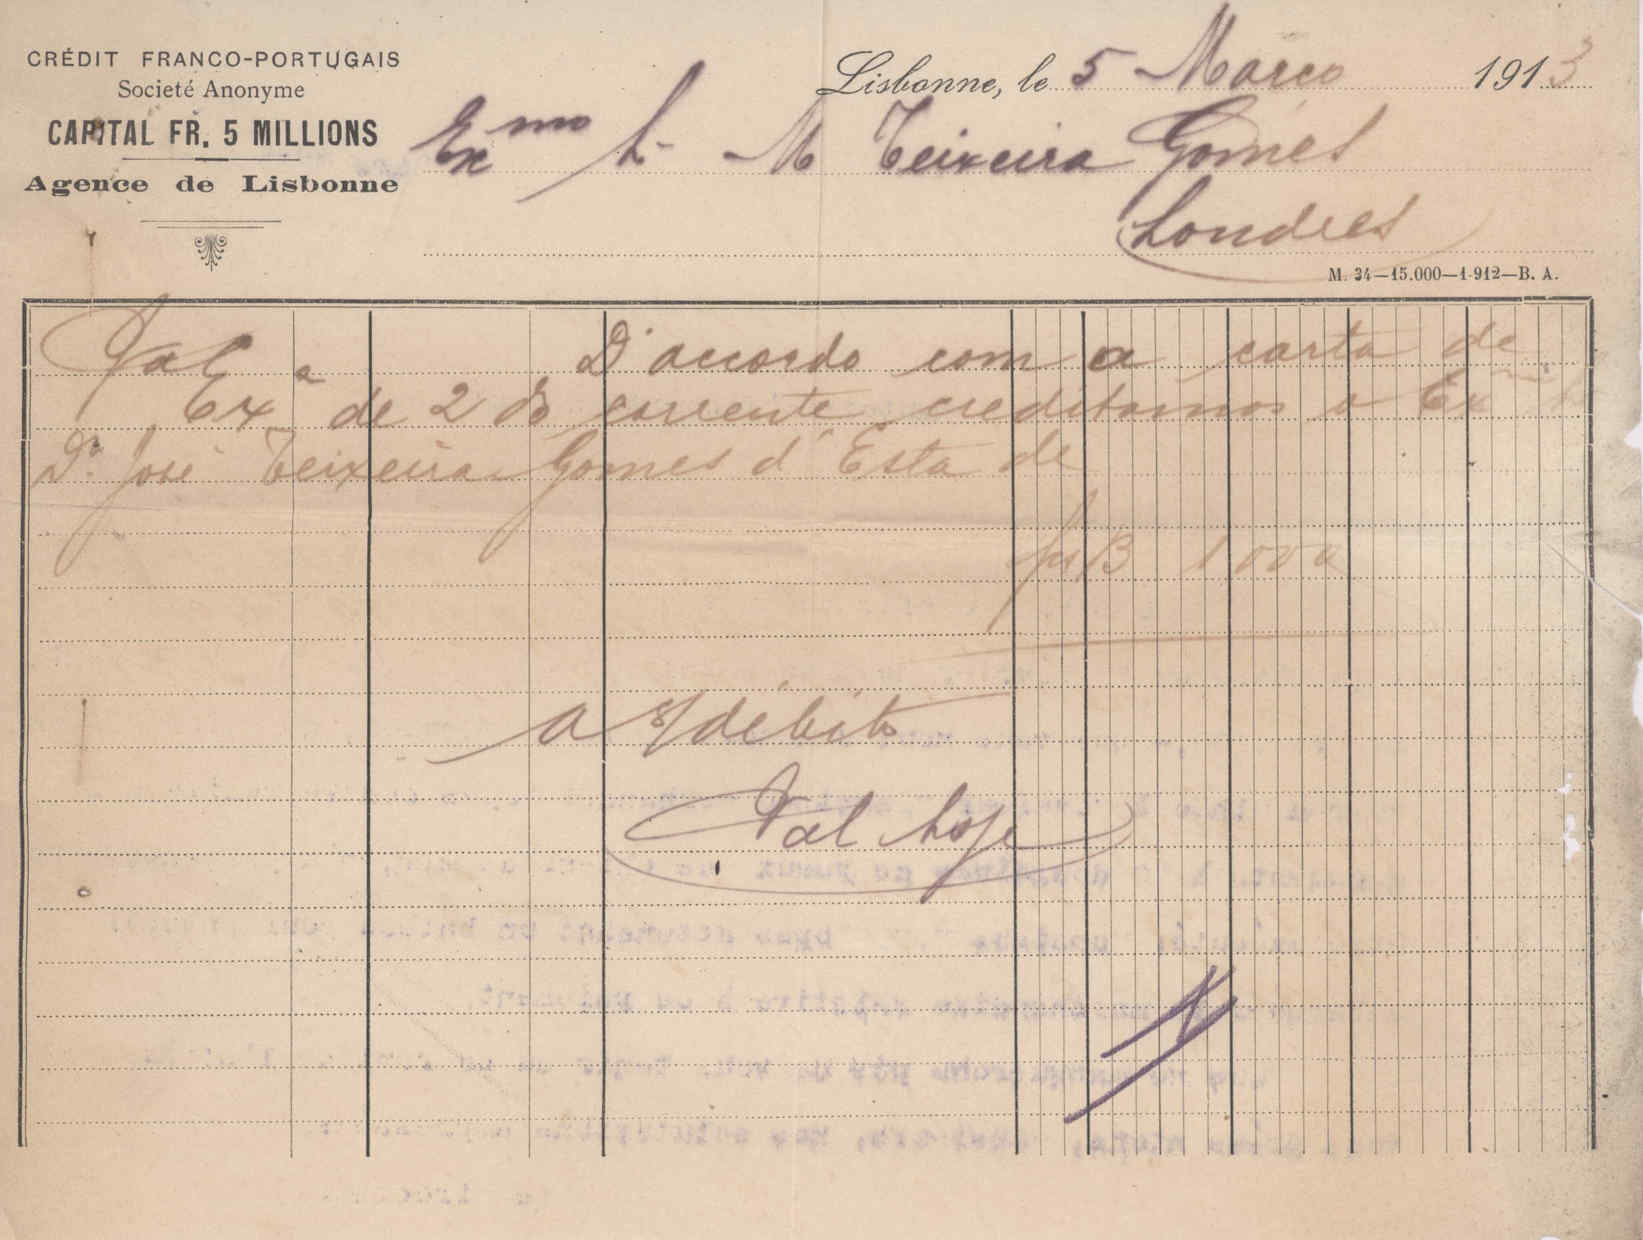 CRÉDIT FRANCO-PORTUGAIS
Societé Anonyme
CAPITAL FR. 5 MILLIONS
Agence de Lisbonne
Lisbonne, le 5 Março 1913
Exmo Sr M Teixeira Gomes
Londres
M. 34—15.000—1-912—B. A.
D'accordo com a carta de
V Exª de 2 do corrente creditamos o Exmo Sr
Dr José Teixeira Gomes d'Esta de
1000
a s/débito
Val hoje